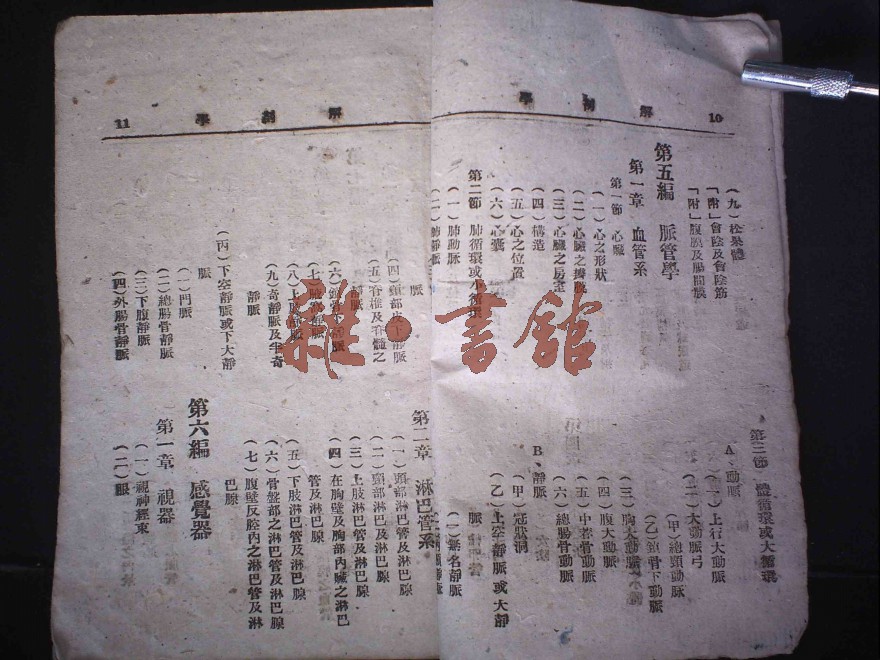 解剖學 10
(九)松果體
「附」會陰及會陰筋
「附」腹膜及腸間膜
第五編 脈管學
第一章 血管系
第一節 心臟
(一)心之形狀
(二)心臟之瓣膜
(三)心臟之房室
(四)構造
(五)心之位置
(六)心囊
第二節 肺循環或小循環
(一)肺動脈
(二)肺靜脈
第三節 體循環或大循環
A、動脈
(一)上行大動脈
(二)大動脈弓
(甲)總頸動脈
(乙)鎖骨下動脈
(三)胸大動脈
(四)腹大動脈
(五)中薦骨動脈
(六)總腸骨動脈
B、靜脈
(甲)冠狀洞
(乙)上空靜脈或大靜
脈
(一)無名靜脈
解剖學 11
脈
(四)頸部皮下靜脈
(五)脊椎及脊髓之
靜脈
(六)鎖骨下靜脈
(七)腋窩靜脈
(八)上肢靜脈
(九)奇靜脈及半奇
靜脈
(丙)下空靜脈或下大靜
脈
(一)門脈
(二)總腸骨靜脈
(三)下腹靜脈
(四)外腸骨靜脈
第二章 淋巴管系
(一)頭部淋巴管及淋巴腺
(二)頸部淋巴管及淋巴腺
(三)上肢淋巴管及淋巴腺
(四)在胸壁及胸部內臟之淋巴
管及淋巴腺
(五)下肢淋巴管及淋巴腺
(六)骨盤部之淋巴管及淋巴腺
(七)腹壁反腔內之淋巴管及淋
巴腺
第六編 感覺器
第一章 視器
(一)視神經束
(二)眼
雜·書館